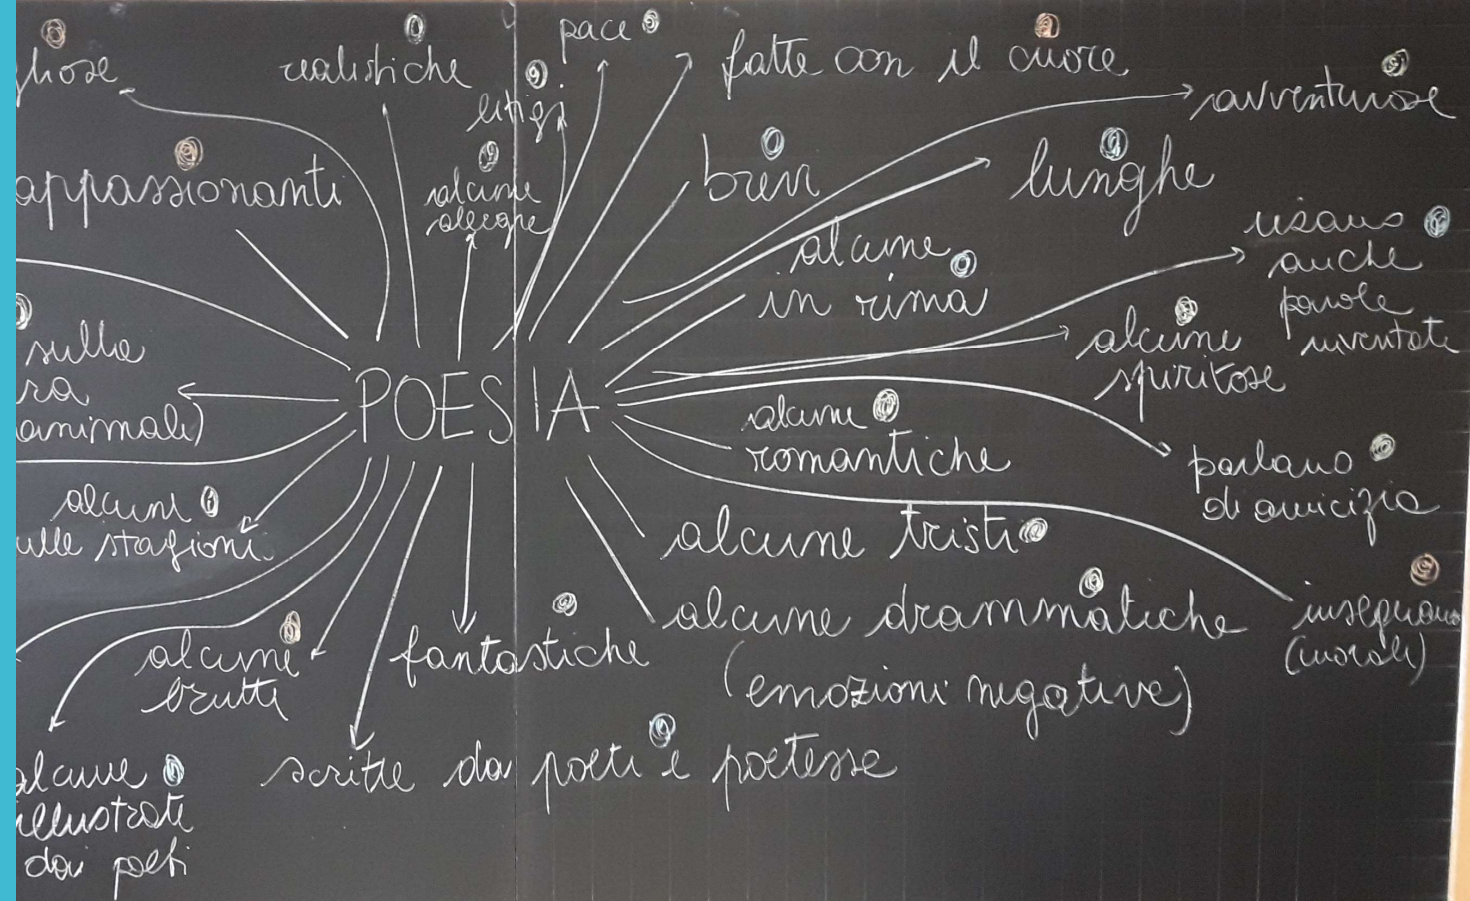 pace
ghose
realistiche
fatte con il cuore
litigi
avventurose
appassionanti
alcune
allegre
brevi
lunghe
alcune
in rima
usano
anche
parole
inventate
sulla
ra
animali)
alcune
spiritose
POESIA
alcune
romantiche
parlano
di amicizia
alcune
ulle stagioni
alcune tristi
alcune drammatiche
(emozioni negative)
insegnano
(morali)
alcune
brutti
fantastiche
scritte da poeti e poetesse
alcune
illustrate
dai poeti